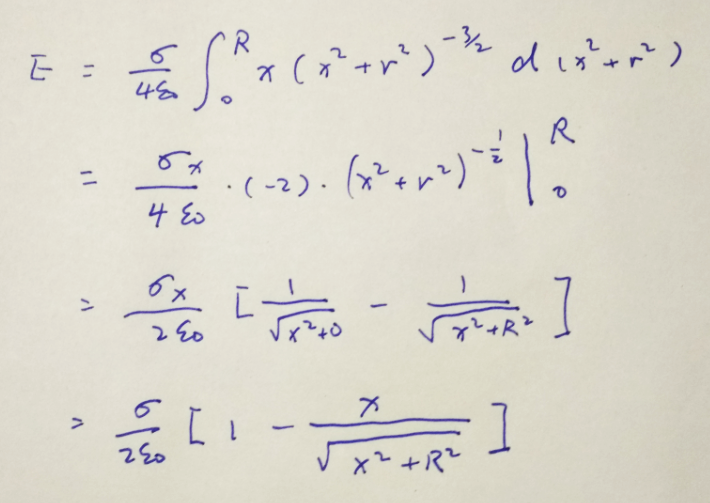 E = σ/4ε₀ ∫₀ᴿ x (x²+r²)^(-3/2) d(x²+r²)
= σx/4ε₀ · (-2) · (x²+r²)^(-1/2) |₀ᴿ
= σx/2ε₀ [1/√(x²+0) - 1/√(x²+R²)]
= σ/2ε₀ [1 - x/√(x²+R²)]